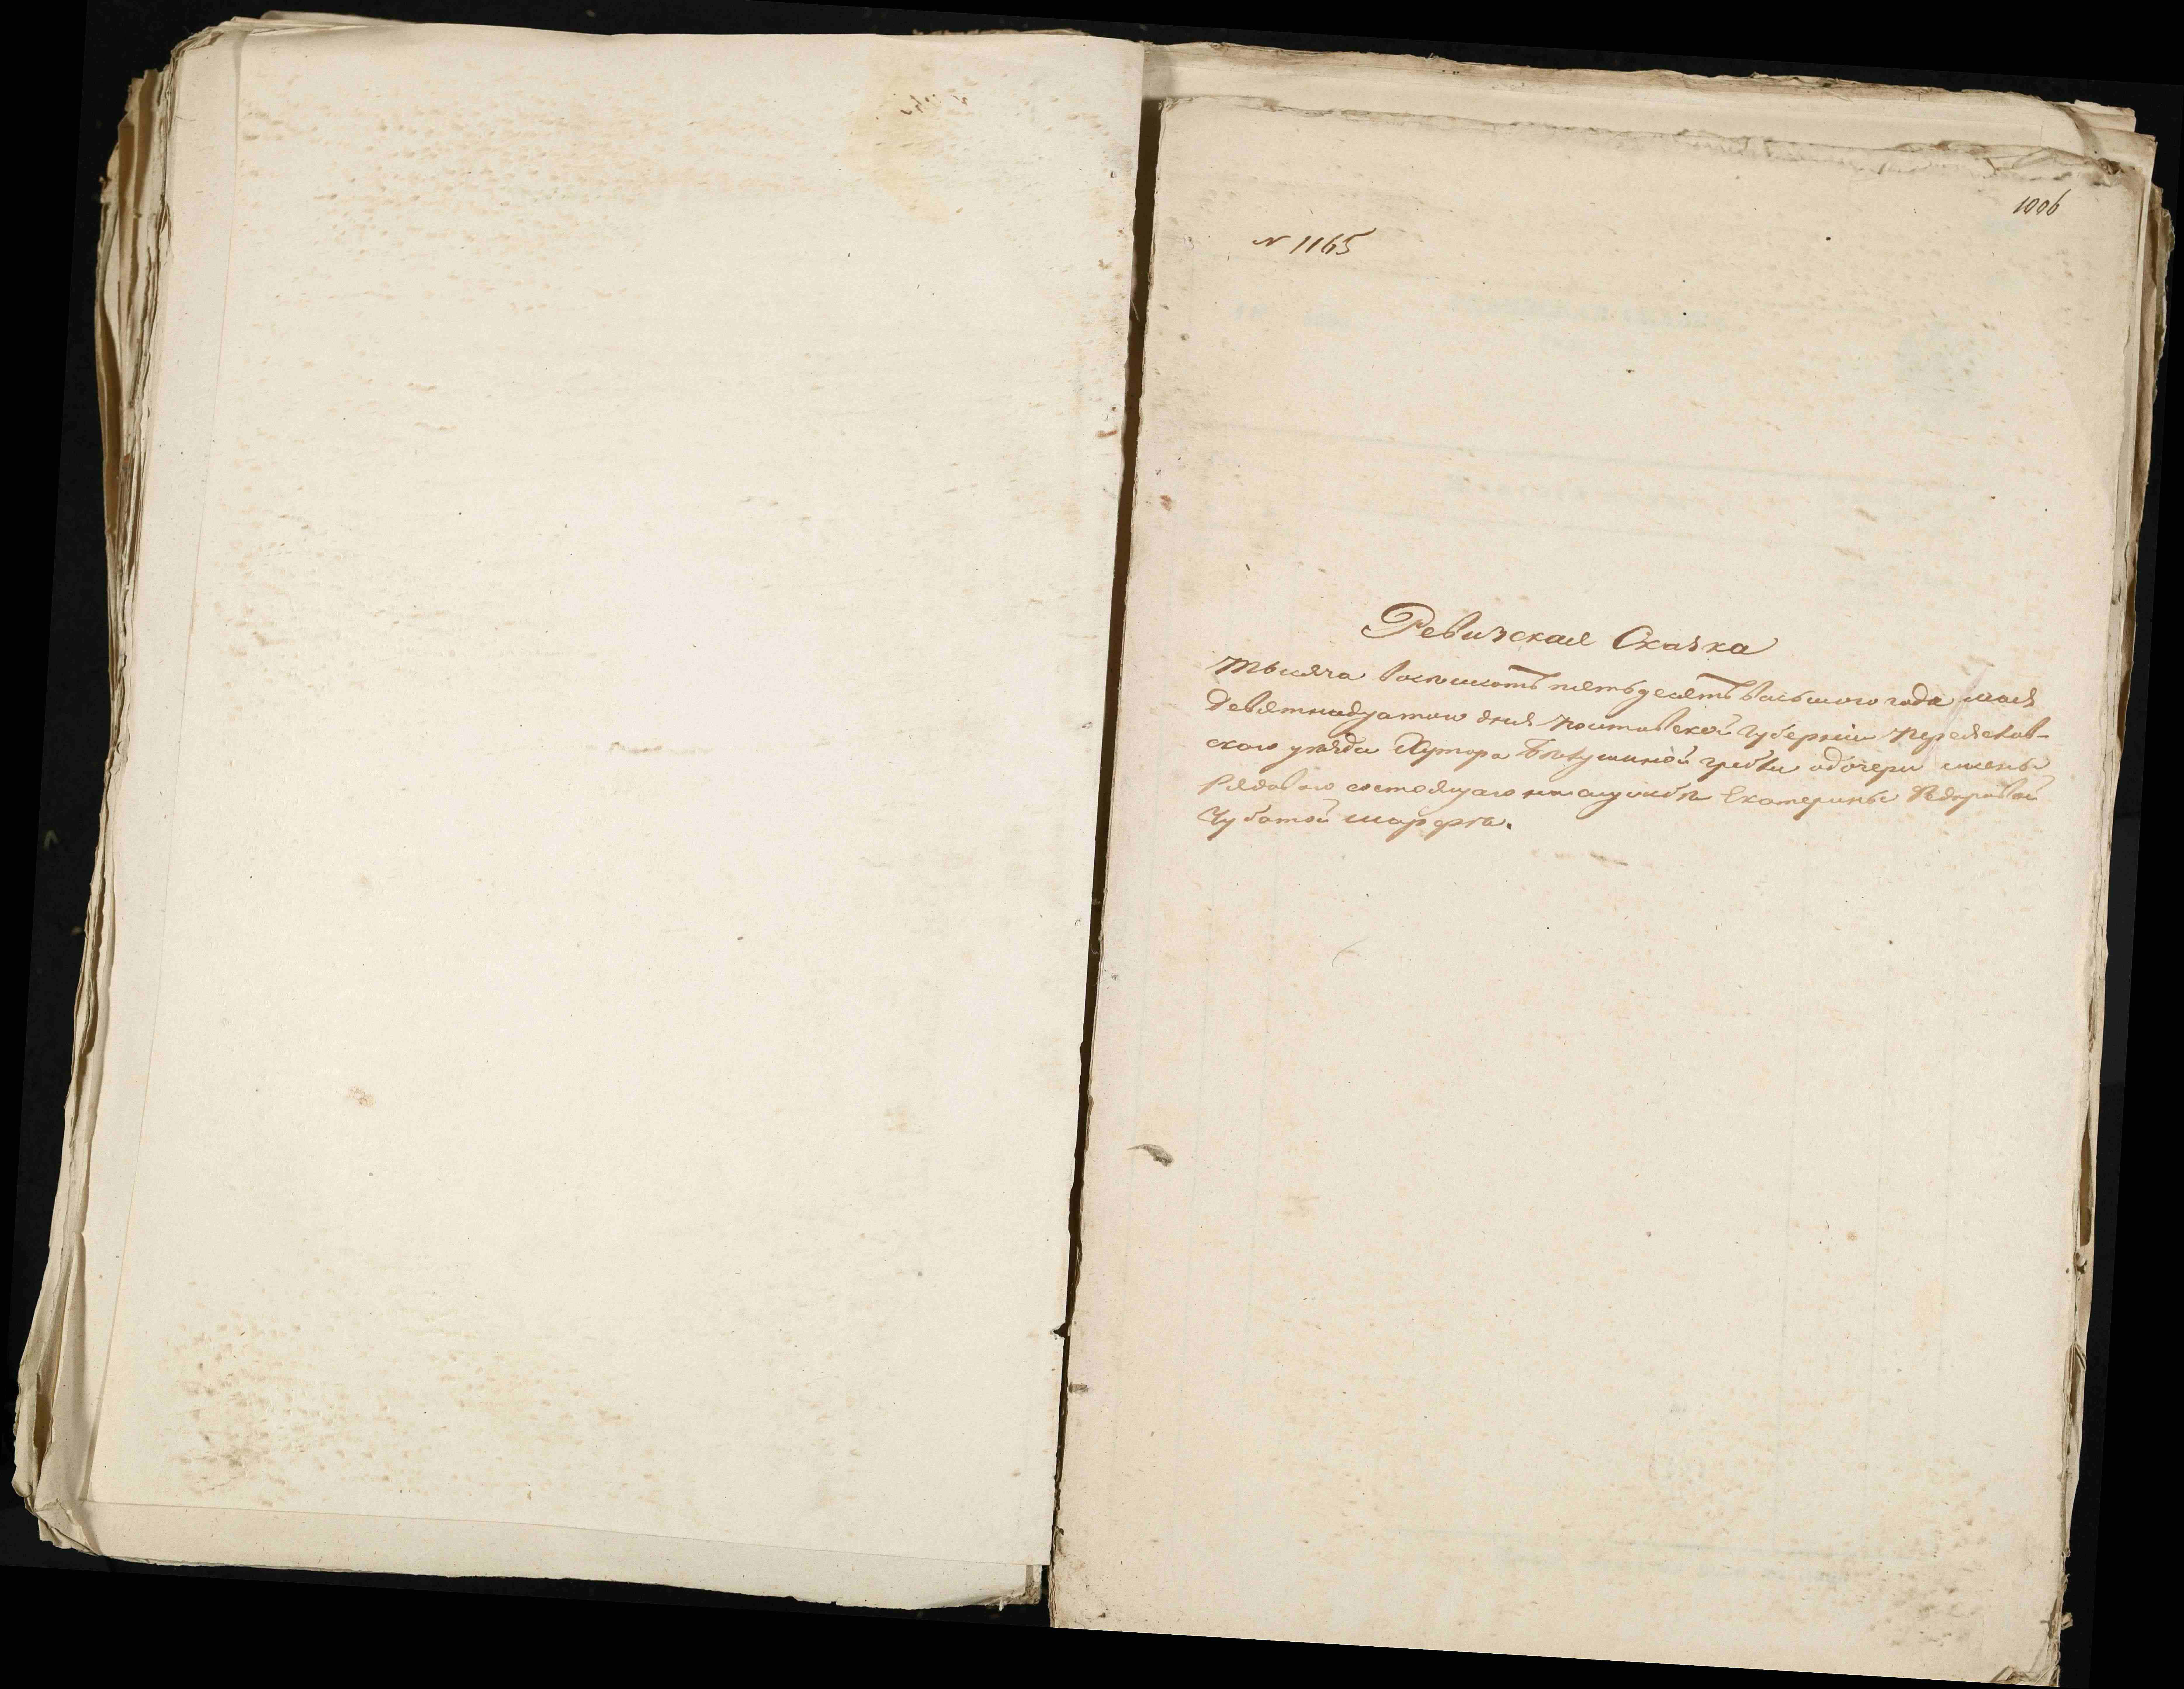 1006
№ 1165
Ревизская Сказка
Тысяча восемсотъ пятьдесятъ восьмого года мая
девятнадцатого дня Полтавской Губерніи Переяслав-
скаго уезда Хутора гребли о дочери жены
Рядоваго состоящаго на службе Екатерины Федоровой
Чубатой Марфа.